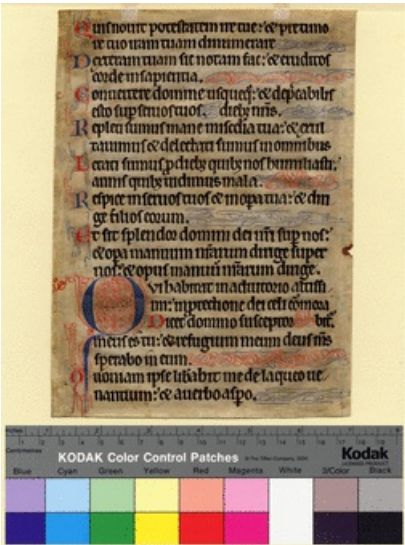 Quis nouit potestatem ire tue: & pre timo
re tuo iram tuam dinumerare
Dexteram tuam sic notam fac: & eruditos
corde in sapientia.
Conuertere domine usquequo: & depcabilis
esto sup seruos tuos.
Repleti sumus mane misedia tua: & exul
tauimus & delectati sumus in omnibus
dieb nris.
Letati sumus p dieb quib nos humiliasti:
annis quib uidimus mala.
Respice in seruos tuos & in opa tua: & diri
ge filios eorum.
Et sit splendor domini dei nri sup nos:
& opa manuum nrarum dirige super
nos: & opus manuu nrarum dirige.
Qui habitat in adiutorio altissi
mi: in protectione dei celi comora
bit.
Dicet domino susceptor
meus es tu: & refugium meum deus ms
sperabo in eum.
Quoniam ipse libabit me de laqueo ue
nantium: & a uerbo aspo.
Inches
Centimetres
KODAK Color Control Patches
© The Tiffen Company, 2000
Kodak
LICENSED PRODUCT
Blue Cyan Green Yellow Red Magenta White 3/Color Black